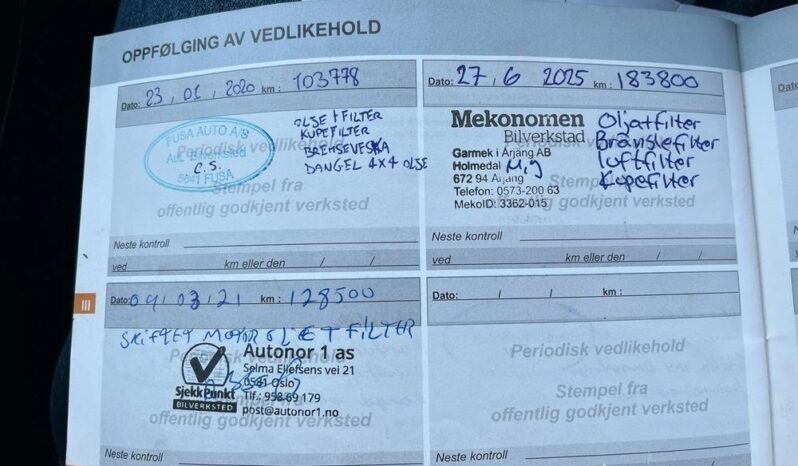 OPPFØLGING AV VEDLIKEHOLD
Dato: 23, 01, 2020 km: 103778
FUSA AUTO A/S
Aut. bilverksted
C.S.
5641 FUSA
OLJE + FILTER
KUPEFILTER
BREMSEVESKA
DANGEL 4X4 OLJE
Periodisk vedlikehold
Stempel fra
offentlig godkjent verksted
Neste kontroll
ved km eller den / /
Dato: 27, 6 2025 km: 183800
Mekonomen
Bilverkstad
Garmek i Årjäng AB
Holmedal
672 94 Årjäng
Telefon: 0573-200 63
MekoID: 3362-015
Oljatfilter
Bränslefilter
luftfilter
Kupefilter
Periodisk vedlikehold
Stempel fra
offentlig godkjent verksted
Neste kontroll
ved km eller den / /
III
Dato: 09, 03, 21 km: 128500
SKIFTET MOTOR OLJE + FILTER
SjekkPunkt
BILVERKSTED
Autonor 1 as
Selma Ellefsens vei 21
0581 Oslo
Tlf.: 958 69 179
post@autonor1.no
Periodisk vedlikehold
Stempel fra
offentlig godkjent verksted
Neste kontroll
Dato: / / km:
Periodisk vedlikehold
Stempel fra
offentlig godkjent verksted
Neste kontroll